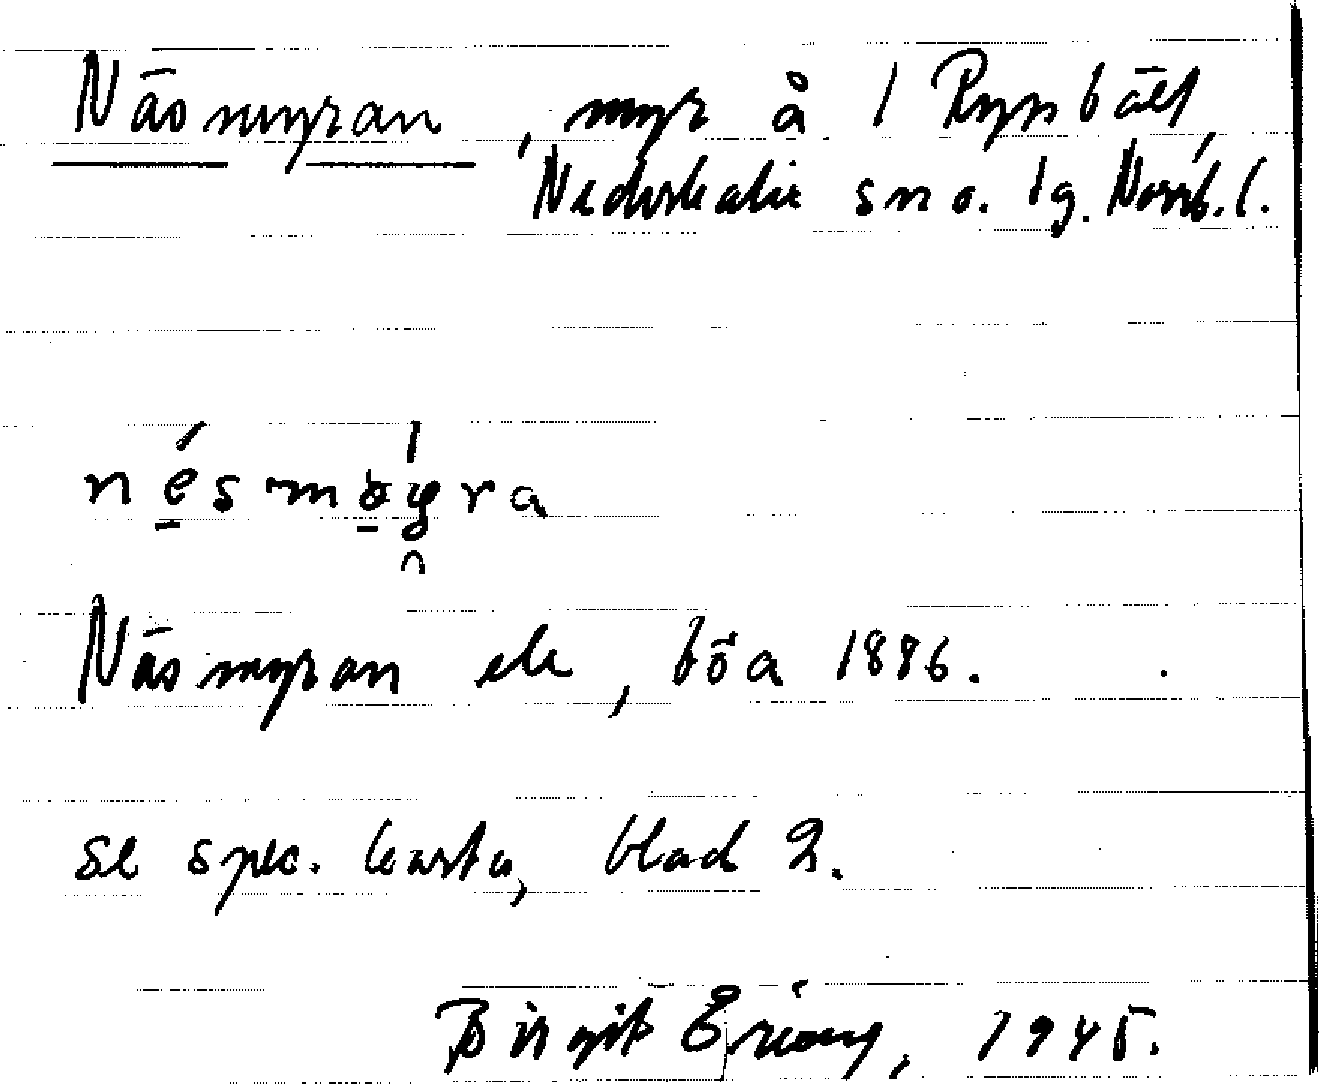 Näsmyran, myr å 1 Rynbäck,
Nederkalix sn o. tg. Norrb. l.
nésmøyra
Näsmyran ek, böa 1886.
se spec. karta, blad 2.
Birgit 1945.